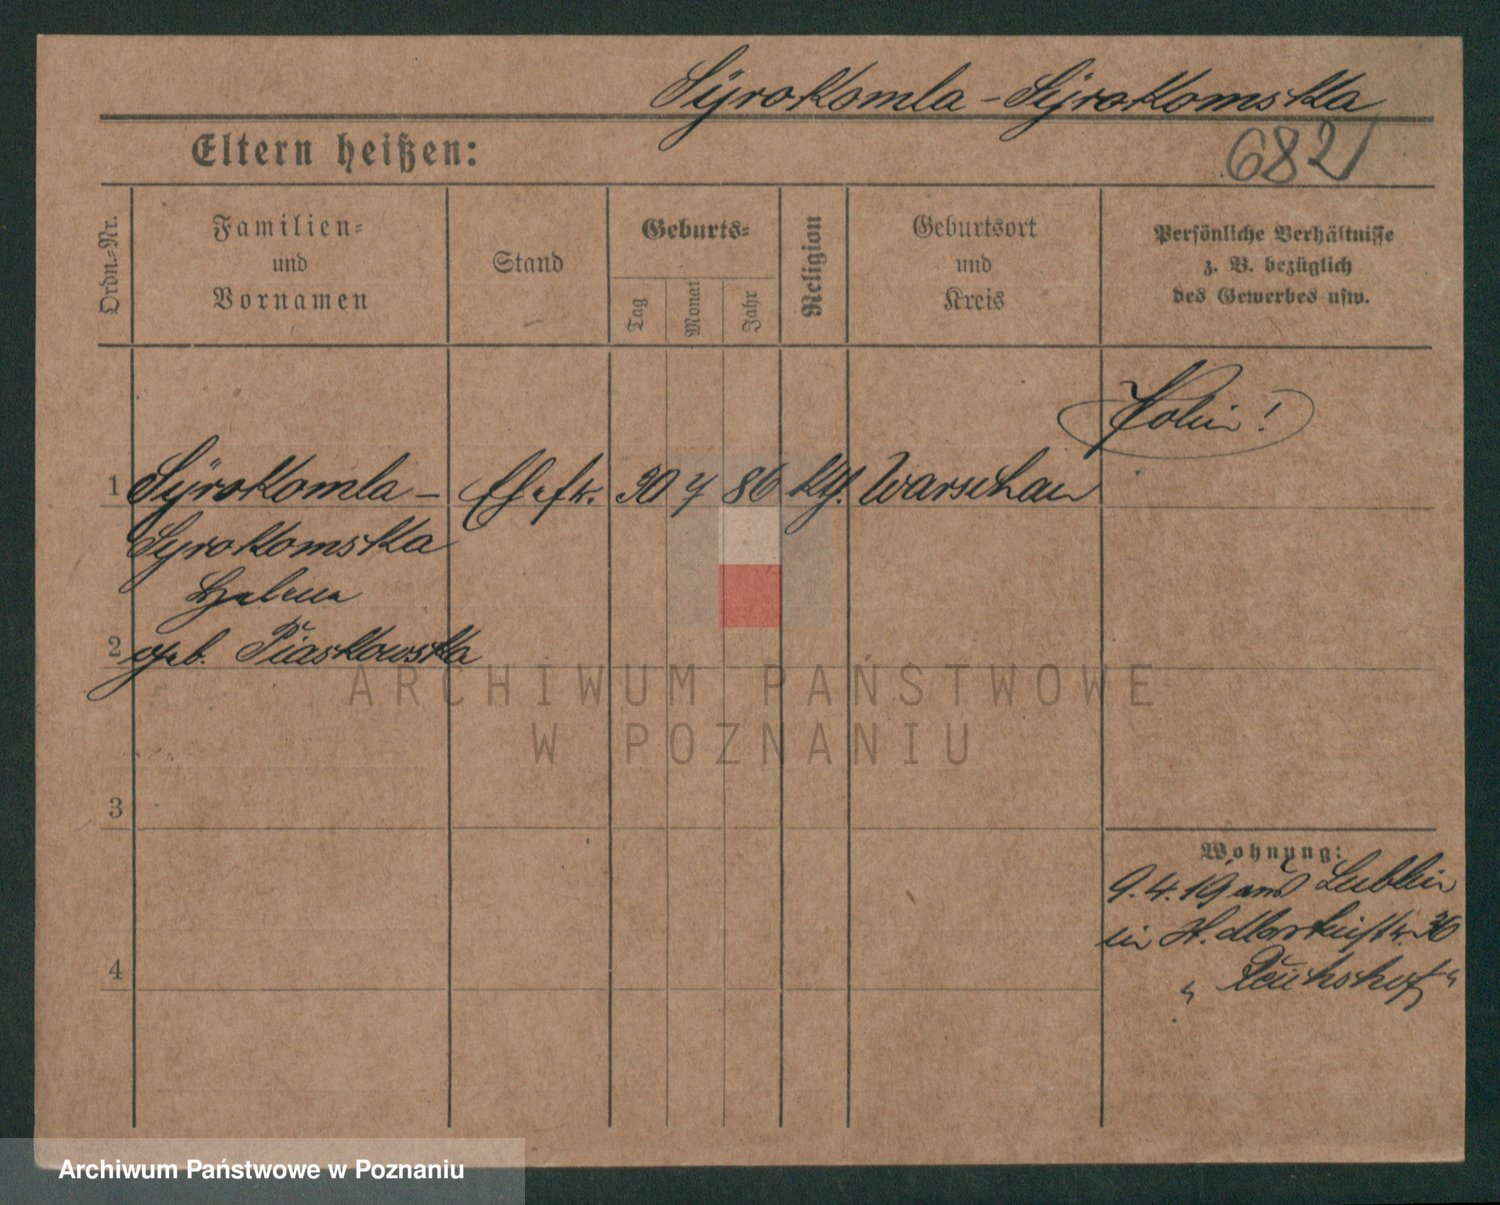 Syrokomla-Syrokomska
Eltern heißen:
682
Ordn.-Nr.
Familien-
und
Vornamen
Stand
Geburts-
Tag
Monat
Jahr
Religion
Geburtsort
und
Kreis
Persönliche Verhältnisse
z. B. bezüglich
des Gewerbes usw.
Polin!
1 Syrokomla- Ehefr. 30 7 86 kth. Warschau
Syrokomska
Helena
2 geb. Piaskowska
ARCHIWUM PAŃSTWOWE
W POZNANIU
3
Wohnung:
9.4.19 aus Lublin
in H. 36
4
"Reichshof"
Archiwum Państwowe w Poznaniu